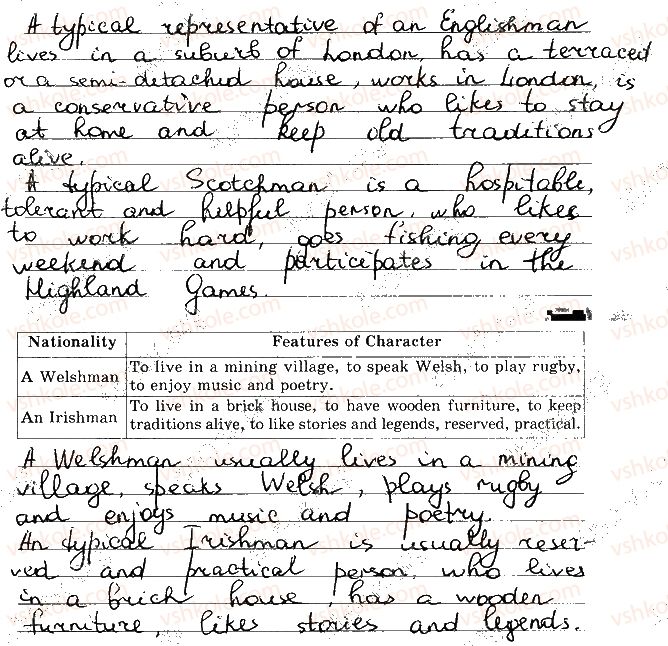 A typical representative of an Englishman
lives in a suburb of London, has a terraced
or a semi-detached house, works in London, is
a conservative person who likes to stay
at home and keep old traditions
alive.
A typical Scotchman is a hospitable,
tolerant and helpful person, who likes
to work hard, goes fishing every
weekend and participates in the
Highland Games.
Nationality Features of Character
A Welshman To live in a mining village, to speak Welsh, to play rugby,
to enjoy music and poetry.
An Irishman To live in a brick house, to have wooden furniture, to keep
traditions alive, to like stories and legends, reserved, practical.
A Welshman usually lives in a mining
village, speaks Welsh, plays rugby
and enjoys music and poetry.
An typical Irishman is usually reser-
ved and practical person, who lives
in a brick house, has a wooden
furniture, likes stories and legends.